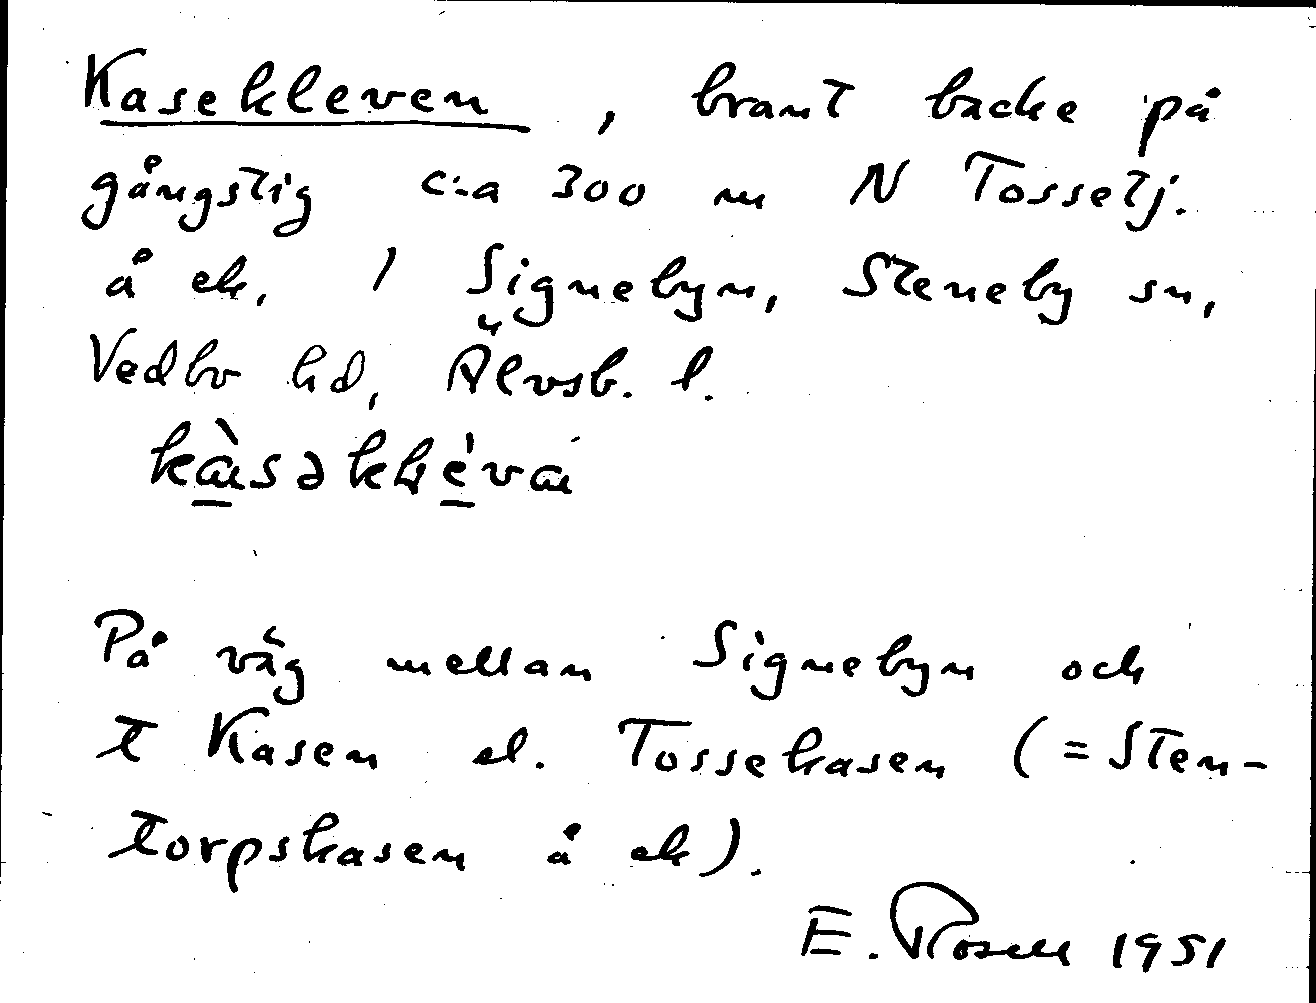 Kasekleven, brant backe på
gångstig c:a 300 m N Tossetj.
å ek, / Signebyn, Steneby sn,
Vedbo hd, Älvsb. l.
På väg mellan Signebyn och
t Kasen el. Tossekasen (= Sten-
torpskasen å ek).
E. Rosell 1951